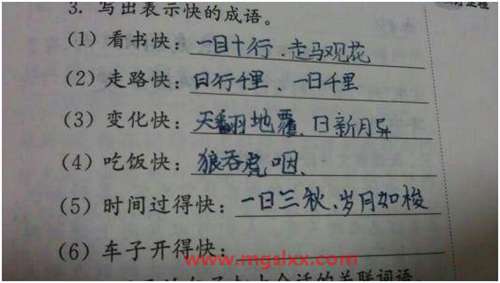 3. 写出表示快的成语。
(1) 看书快：一目十行、走马观花
(2) 走路快：日行千里、一日千里
(3) 变化快：天翻地覆、日新月异
(4) 吃饭快：狼吞虎咽、
(5) 时间过得快：一日三秋、岁月如梭
(6) 车子开得快：
www.mgslxx.com